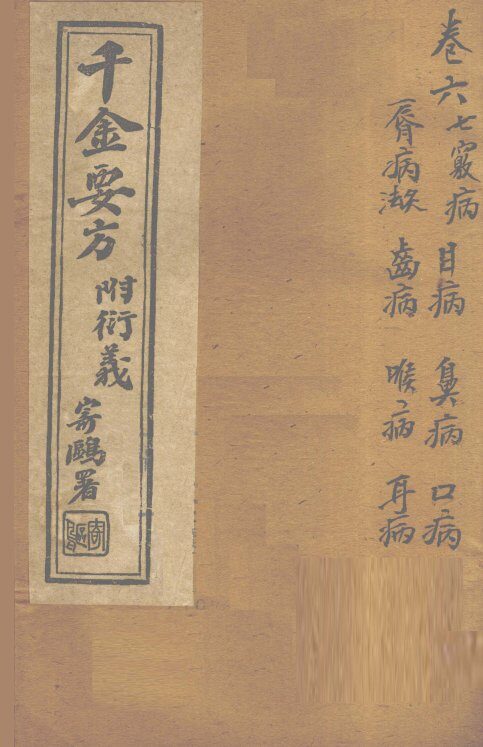 卷六七竅病 目病 鼻病 口病
脣病 齒病 喉病 耳病
千金要方
附衍義
寄鷗署
寄鷗